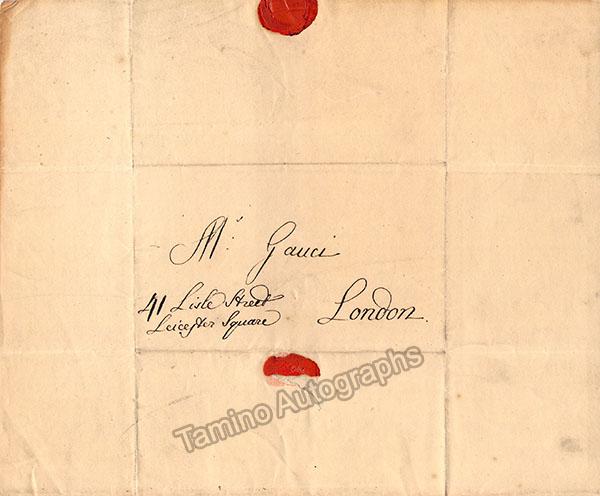 Mr. Gauci
41 Lisle Street
Leicester Square
London.
Tamino Autographs